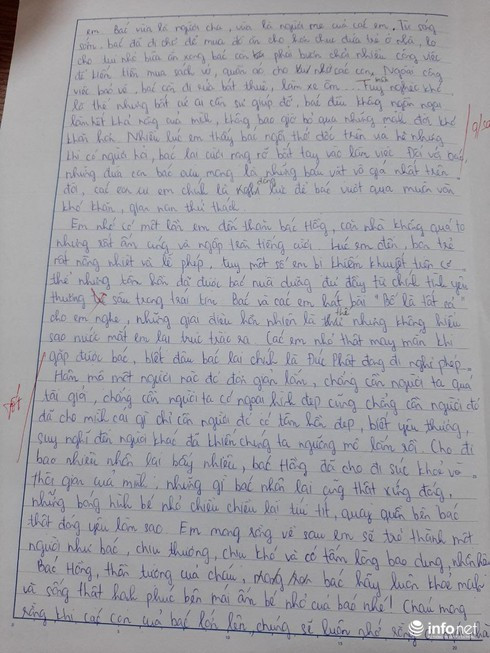 em. Bác vừa là người cha, vừa là người mẹ của các em. Từ sáng
sớm, bác đã đi chợ để mua đồ ăn cho hơn chục đứa trẻ ở nhà, lo
cho tụi nhỏ bữa ăn xong bác còn phải bươn chải nhiều công việc
để kiếm tiền mua sách vở, quần áo cho các con. Ngoài công
việc bảo vệ, bác còn đi sửa bất thuê, làm xe ôm... Tuy nghèo khó
là thế nhưng bất cứ ai cần sự giúp đỡ, bác đều không ngần ngại
làm hết khả năng của mình, không bao giờ bỏ qua những mảnh đời khó
khăn hơn. Nhiều lúc em thấy bác ngồi thở dốc trên vỉa hè nhưng
khi có người hỏi, bác lại cười rạng rỡ bắt tay vào làm việc. Đối với bác,
những đứa con bác cưu mang là những báu vật vô giá nhất trên
đời, các em ấy em chính là động lực để bác vượt qua muôn vàn
khó khăn, gian nan thử thách.
Em nhớ có một lần em đến thăm bác Hồng, căn nhà không quá to
nhưng rất ấm cúng và ngập tràn tiếng cười. Lúc em đến, bọn trẻ
rất nồng nhiệt và lễ phép, tuy một số em bị khiếm khuyết trên cơ
thể nhưng tâm hồn đã được bác nuôi dưỡng đủ đầy từ chính tình yêu
thương sâu trong trái tim. Bác và các em hát bài "Bố là tất cả"
cho em nghe, những giai điệu hồn nhiên là thế nhưng không hiểu
sao nước mắt em lại trực trào ra. Các em nhỏ thật may mắn khi
gặp được bác, biết đâu bác lại chính là Đức Phật đang đi nghỉ phép.
Hâm mộ một người nào đó đơn giản lắm, chẳng cần người ta quá
tài giỏi, chẳng cần người ta có ngoại hình đẹp cũng chẳng cần người đó
đã cho mình cái gì chỉ cần người đó có tâm hồn đẹp, biết yêu thương,
suy nghĩ đến người khác đã khiến chúng ta ngưỡng mộ lắm rồi. Cho đi
bao nhiêu nhận lại bấy nhiêu, bác Hồng đã cho đi sức khoẻ và
thời gian của mình; nhưng gì bác nhận lại cũng thật xứng đáng,
những bóng hình bé nhỏ chiều chiều lại tíu tít, quây quần bên bác
thật đáng yêu làm sao. Em mong rằng về sau em sẽ trở thành một
người như bác, chịu thương, chịu khó và có tấm lòng bao dung, nhân hậu.
Bác Hồng, thần tượng của cháu, mong bác hãy luôn khoẻ mạnh
và sống thật hạnh phúc bên mái ấm bé nhỏ của bác nhé! Cháu mong
rằng khi các con của bác lớn lên, chúng sẽ luôn nhớ rằng
infonet